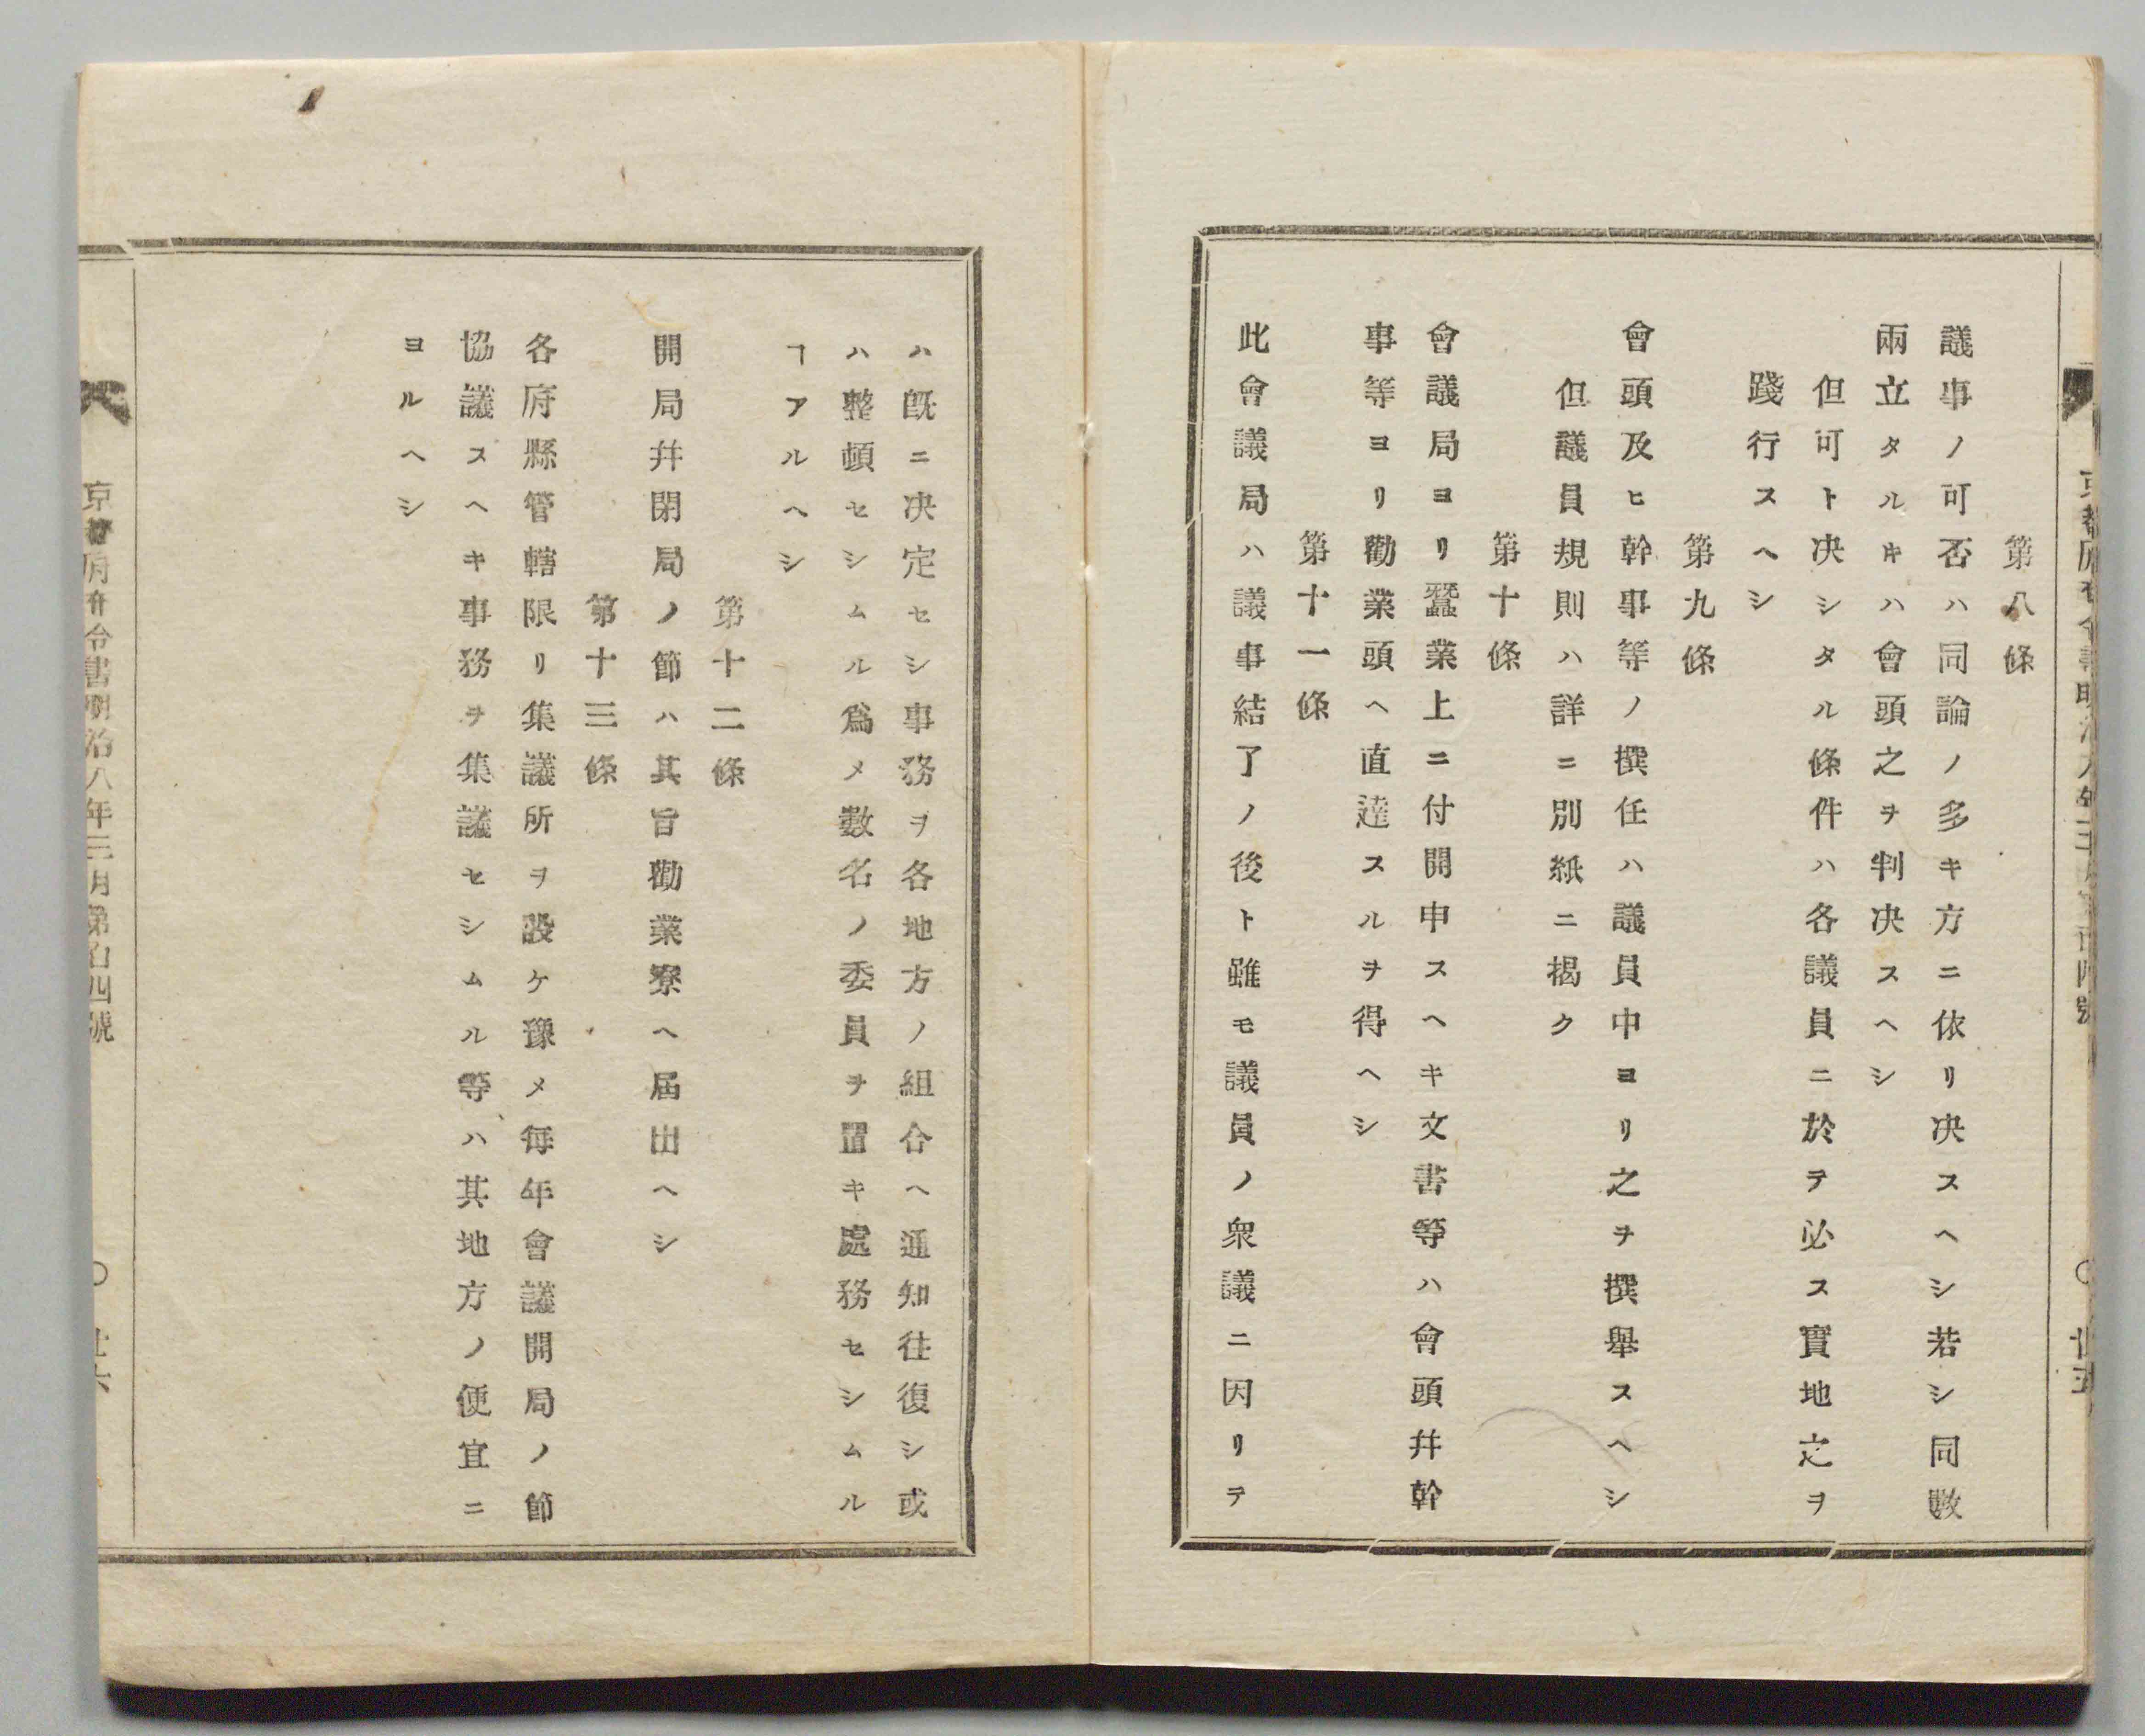 第八條
議事ノ可否ハ同論ノ多キ方ニ依リ决スヘシ若シ同數
兩立タルキハ會頭之ヲ判决スヘシ
但可ト决シタル條件ハ各議員ニ於テ必ス實地之ヲ
踐行スヘシ
第九條
會頭及ヒ幹事等ノ撰任ハ議員中ヨリ之ヲ撰舉スヘシ
但議員規則ハ詳ニ別紙ニ揭ク
第十條
會議局ヨリ蠶業上ニ付開申スヘキ文書等ハ會頭幷幹
事等ヨリ勸業頭ヘ直達スルヲ得ヘシ
第十一條
此會議局ハ議事結了ノ後ト雖モ議員ノ衆議ニ因リテ
ハ既ニ决定セシ事務ヲ各地方ノ組合ヘ通知往復シ或
ハ整頓セシムル爲メ數名ノ委員ヲ置キ處務セシムル
ヿアルヘシ
第十二條
開局幷閉局ノ節ハ其旨勸業寮ヘ屆出ヘシ
第十三條
各府縣管轄限リ集議所ヲ設ケ豫メ每年會議開局ノ節
協議スヘキ事務ヲ集議セシムル等ハ其地方ノ便宜ニ
ヨルヘシ
令書明治八年三月第百四號